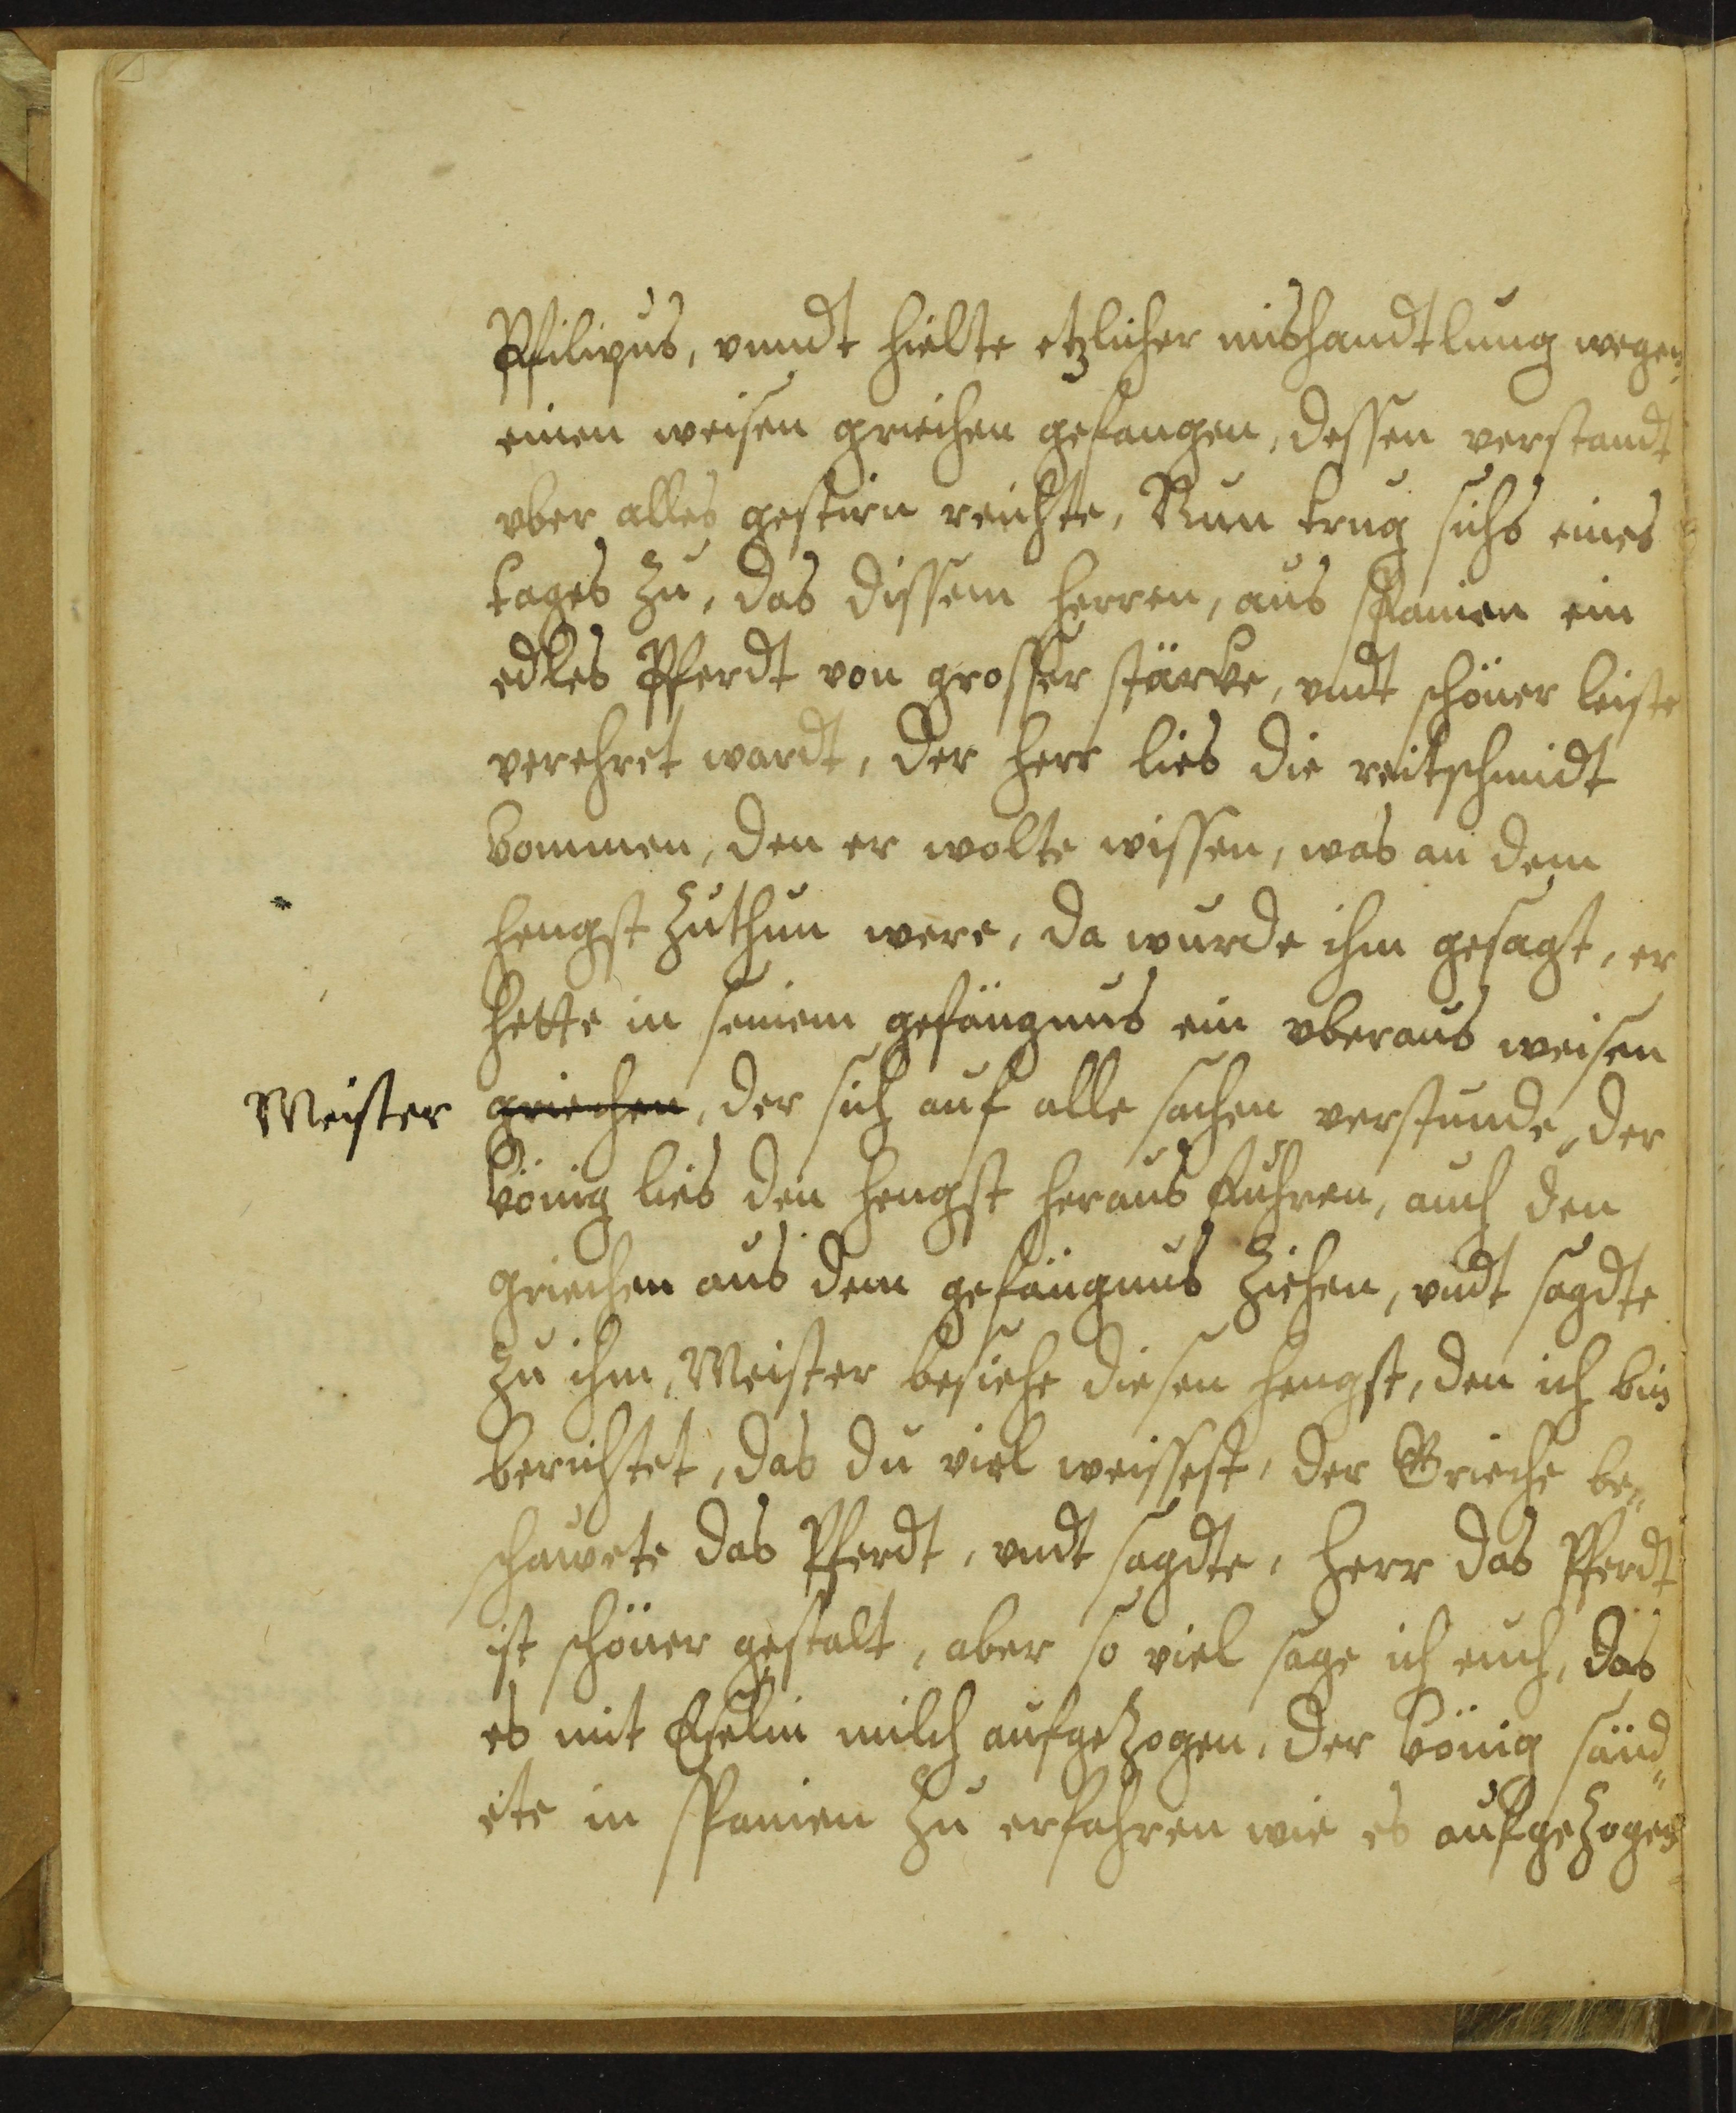 Philipus, vnndt hielte etzlicher mishandtlung wegen,
einen weisen griechen gefangen, dessen verstandt
vber alles gestirn reichte, Nun trug sichs eines
tages zu, das dissem herren, aus spanien ein
edles Pferdt von grosser stärke, vndt schöner leiste
verehret wardt, der herr lies die reitschmidt
kommen, den er wolte wissen, was an dem
hengst zuthun were, da wurde ihm gesagt, er
hette in seinem gefängnus ein vberaus weisen
Meister griechen, der sich auf alle sachen verstunde, der
könig lies den hengst heraus fuhren, auch den
griechen aus dem gefängnus ziehen, vndt sagdte
zu ihm, Meister besiehe diesen hengst, den ich bin
berichtet, das du viel weissest, der Grieche be„
schauwete das Pferdt, vndt sagdte, herr das Pferdt
ist schöner gestalt, aber so viel sage ich euch, das
es mit Eselin milch aufgezogen, der könig sänd„
ete in spanien zu erfahren wie es aufgezogen